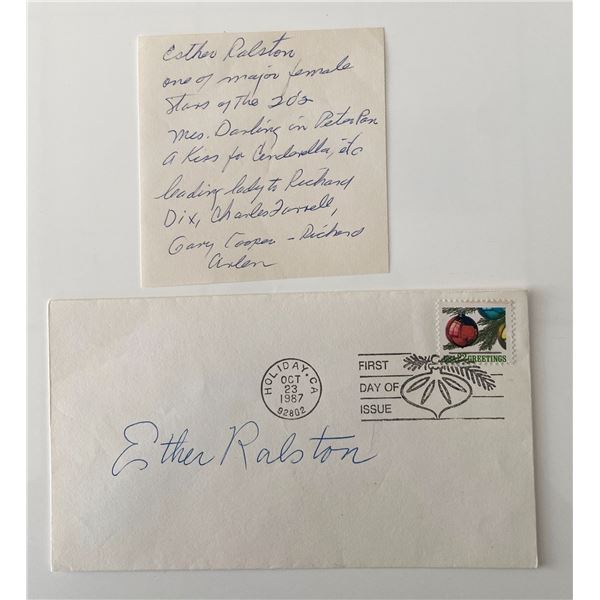 Esther Ralston
one of major female
stars of the 20's
Mrs. Darling in Peter Pan
A Kiss for Cinderella, etc
leading lady to Richard
Dix, Charles Farrell,
Gary Cooper - Richard
Arlen
GREETINGS
HOLIDAY, CA
OCT
23
1987
92802
FIRST
DAY OF
ISSUE
Esther Ralston